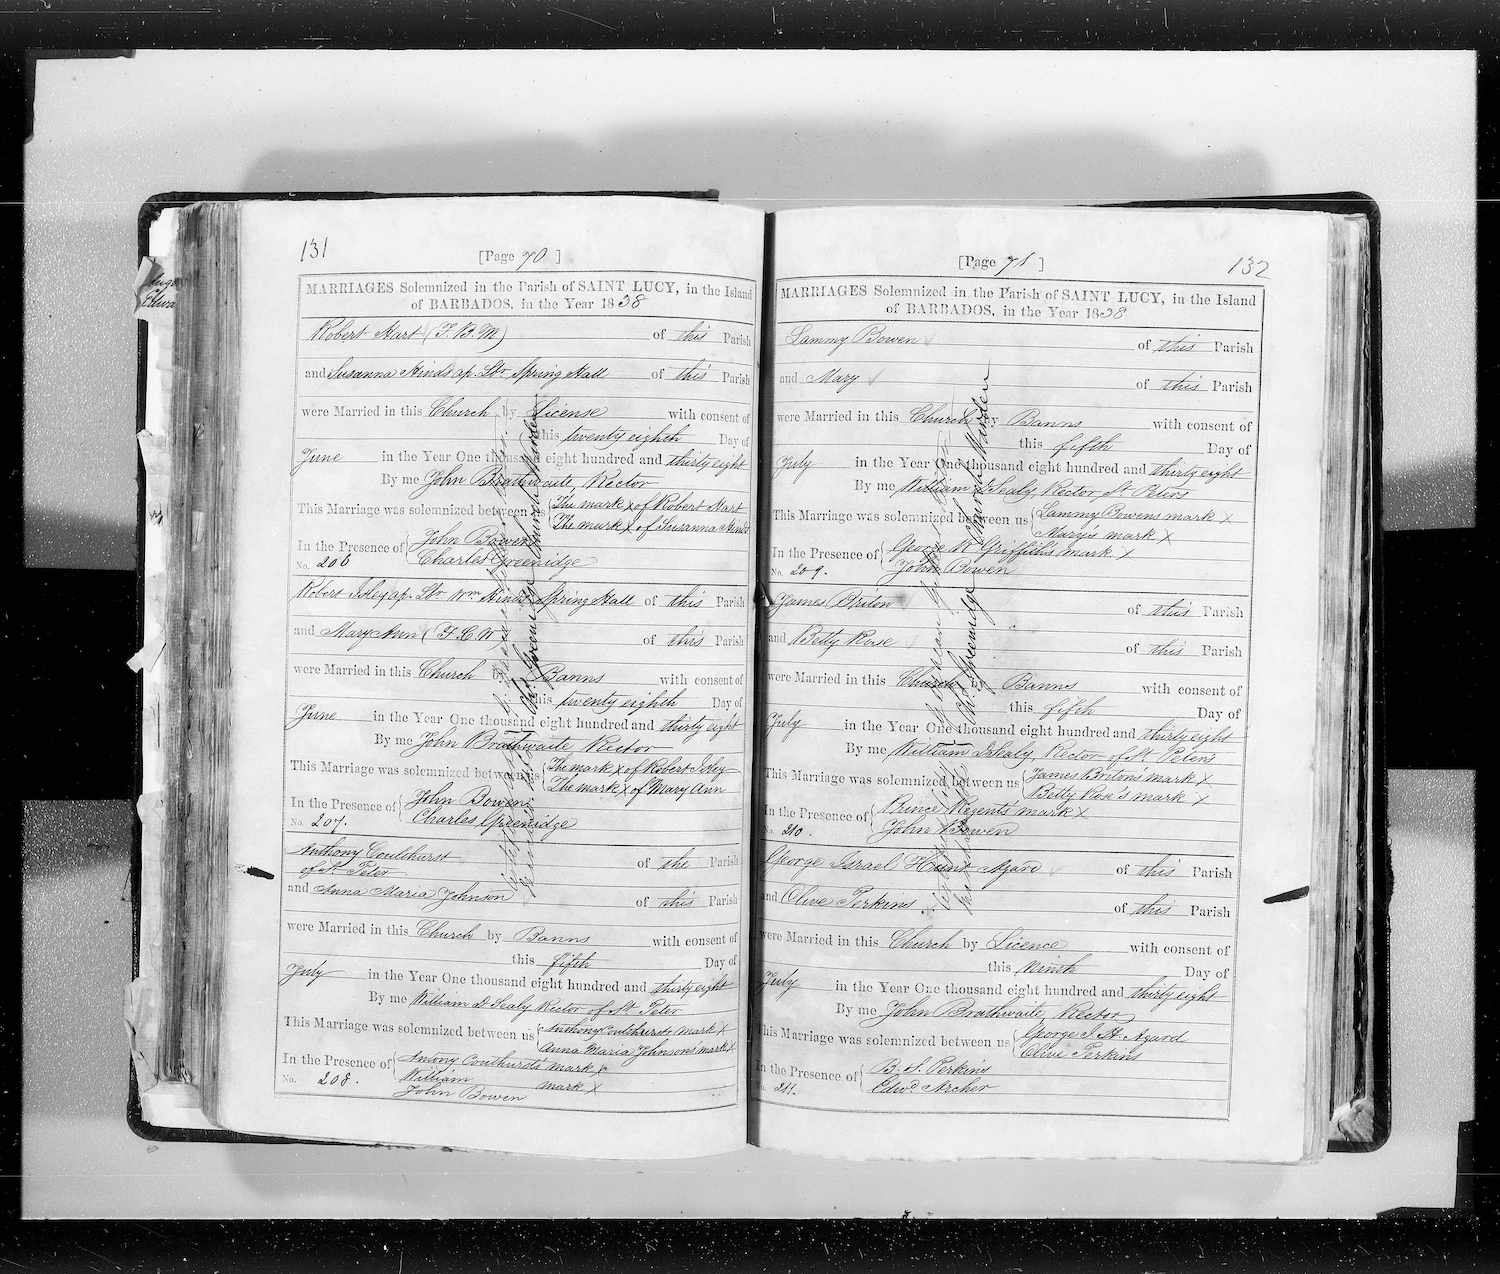 131
[Page 70 ]
MARRIAGES Solemnized in the Parish of SAINT LUCY, in the Island
of BARBADOS, in the Year 1838
Robert Hart (F. B. M) of this Parish
and Susanna Hinds ap. Lbr Spring Hall of this Parish
were Married in this Church by License with consent of
this twenty eighth Day of
June in the Year One thousand eight hundred and thirty eight
By me John Brathwaite, Rector
This Marriage was solemnized between us The mark x of Robert Hart
The mark x of Susanna Hinds
In the Presence of John Bowen
Charles Greenidge
No. 206
Robert Isley ap. Lbr Wm Hinds Spring Hall of this Parish
and Mary Ann (F. C. W) of this Parish
were Married in this Church by Banns with consent of
this twenty eighth Day of
June in the Year One thousand eight hundred and thirty eight
By me John Brathwaite, Rector
This Marriage was solemnized between us The mark x of Robert Isley
The mark x of Mary Ann
In the Presence of John Bowen
Charles Greenidge
No. 207.
Anthony Coulthurst of the Parish
of St. Peter
and Anna Maria Johnson of this Parish
were Married in this Church by Banns with consent of
this fifth Day of
July in the Year One thousand eight hundred and thirty eight
By me William D Sealy Rector of St Peter
This Marriage was solemnized between us Anthony Coulthursts mark x
Anna Maria Johnsons mark x
In the Presence of Antony Coulthursts mark x
William mark x
No. 208. John Bowen
Chas. Greenidge Church Warden
[Page 71 ]
132
MARRIAGES Solemnized in the Parish of SAINT LUCY, in the Island
of BARBADOS, in the Year 1838
Sammy Bowen of this Parish
and Mary of this Parish
were Married in this Church by Banns with consent of
this fifth Day of
July in the Year One thousand eight hundred and thirty eight
By me William D Sealy, Rector St. Peters
This Marriage was solemnized between us Sammy Bowens mark x
Mary's mark x
In the Presence of George W. Griffith's mark x
No. 209. John Bowen
James Briton of this Parish
and Betty Rose of this Parish
were Married in this Church Banns with consent of
this fifth Day of
July in the Year One thousand eight hundred and thirty eight
By me William D Sealy, Rector of St. Peters
This Marriage was solemnized between us James Briton's mark x
Betty Rose's mark x
In the Presence of Prince Regents mark x
No. 210. John Bowen
George Israel Hunt Agard of this Parish
and Olive Perkins of this Parish
were Married in this Church by Licence with consent of
this Ninth Day of
July in the Year One thousand eight hundred and thirty eight
By me John Brathwaite, Rector
This Marriage was solemnized between us George I. H. Agard
Olive Perkins
In the Presence of B. S. Perkins
No. 211. Edwd. Archer
Chas. Greenidge Church Warden